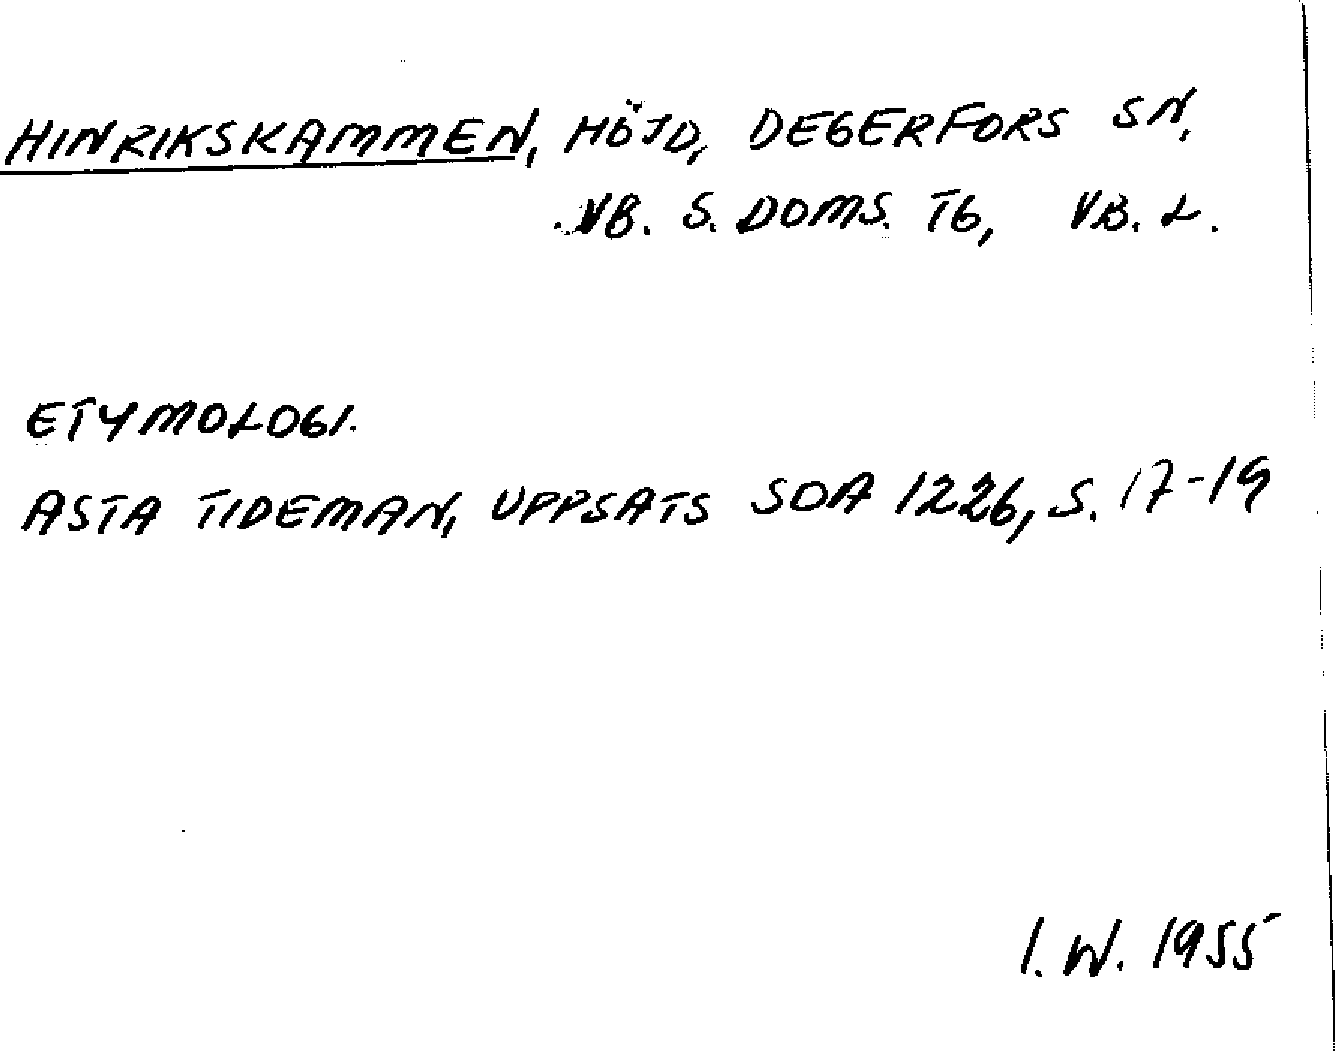 HINRIKSKAMMEN, HÖJD, DEGERFORS SN,
VB. S. DOMS. TG, VB. L.
ETYMOLOGI.
ASTA TIDEMAN, UPPSATS SOA 1226, S. 17-19
I. W. 1955